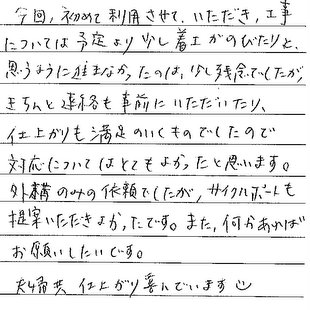 今回、初めて利用させて、いただき、工事
については予定より少し着工がのびたりと、
思うように進まなかったのは、少し残念でしたが、
きちんと連絡も事前にいただいたり、
仕上がりも満足のいくものでしたので
対応についてはとてもよかったと思います。
外構のみの依頼でしたが、サイクルポートも
提案いただきよかったです。また、何かあれば
お願いしたいです。
夫婦共 仕上がり喜んでいます